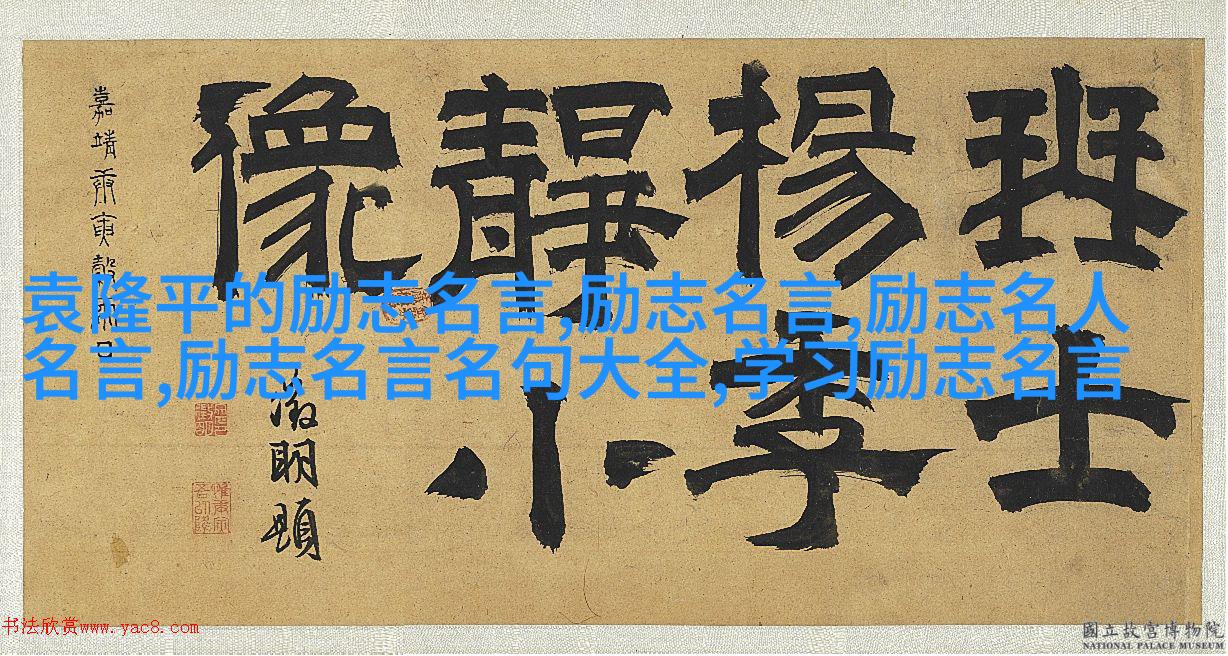 琴士
楊季
靜小
像
嘉靖庚寅穀雨日
徵明題
袁隆平的励志名言,励志名言,励志名人
名言,励志名言名句大全,学习励志名言
书法欣赏www.yac8.com
國立故宮博物院
NATIONAL PALACE MUSEUM